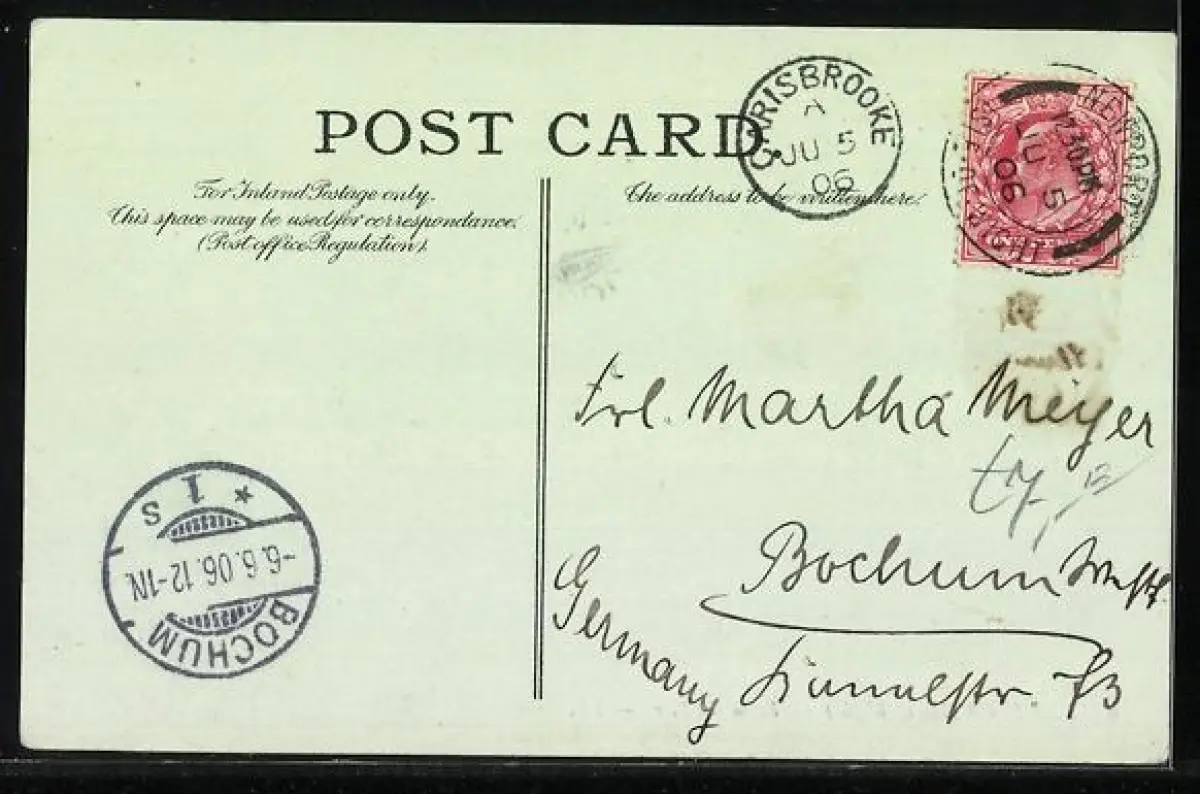 POST CARD
For Inland Postage only.
This space may be used for correspondance.
(Post office Regulation).
The address to be written here.
CARISBROOKE
A
JU 5
06
NEWPORT
12.30PM
JU 5
06
ISLE OF WIGHT
Frl. Martha Meyer
Bochum Westf.
Germany
BOCHUM
-6.6.06.12-1N
* 1 S